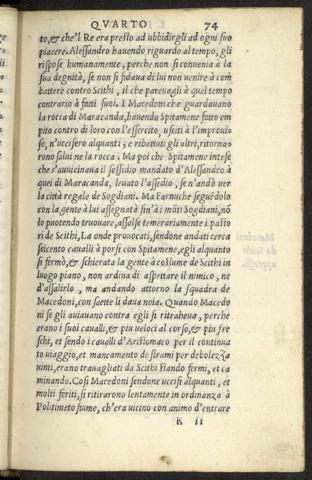 QVARTO 74
to,& che'l Re era presto ad ubbidirgli ad ogni suo
piacere. Alessandro hauendo riguardo al tempo, gli
rispose humanamente, perche non si conuenia à la
sua degnità, se non si fidaua di lui non uenire à com
battere contro Scithi, il che pareuagli à quel tempo
contrario à fatti suoi. I Macedoni che guardauano
la rocca di Maracanda, hauendo Spitamene fatto em
pito contro di loro con l'essercito, usciti à l'improui
so, n'uccisero alquanti, e ribattuti gli altri, ritorna-
rono salui ne la rocca. Ma poi che Spitamene intese
che s'auuicinaua il sossidio mandato d'Alessandro à
quei di Maracanda, leuato l'assedio, se n'andò uer
la città regale de Sogdiani. Ma Farnuche seguēdolo
con la gente à lui assegnata fin'à i mōti Sogdiani, nō
lo puotendo truouare, assalse temerariamente i pasto
ri de Scithi, La onde prouocati, sendone andati cerca
seicento caualli à porsi con Spitamene, egli alquanto
si fermò, & schierata la gente à costume de Scithi in
luogo piano, non ardiua di aspettare il nimico, ne
d'assalirlo, ma andando attorno la squadra de
Macedoni, con saette li daua noia. Quando Macedo
ni se gli auiauano contra egli si ritraheua, perche
erano i suoi caualli, & piu ueloci al corso, & piu fre
schi, et sendo i caualli d'Aristomaco per il continua
to uiaggio, et mancamento de strami per debolezza
uinti, erano trauagliati da Scithi stando fermi, et ca
minando. Cosi Macedoni sendone uccisi alquanti, et
molti feriti, si ritirarono lentamente in ordinanza à
Politimeto fiume, ch'era uicino con animo d'entrare
K ii